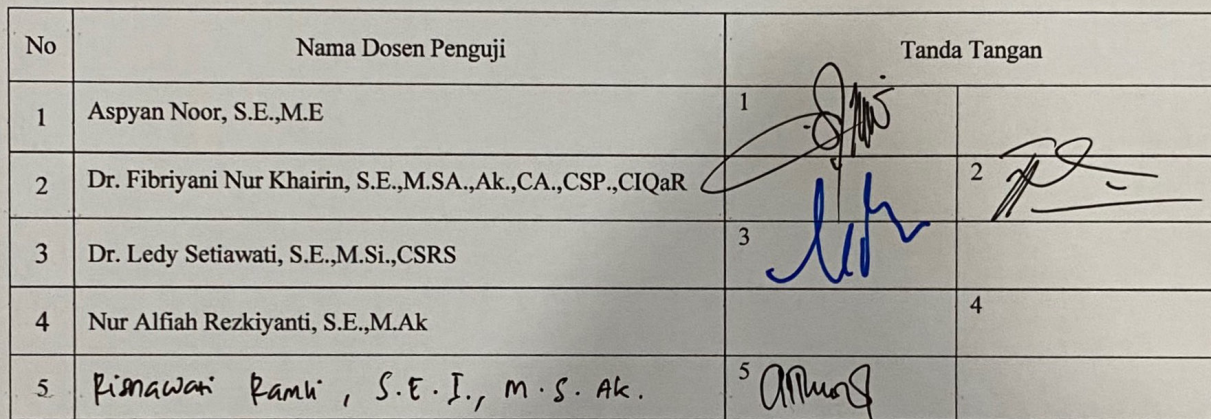 No Nama Dosen Penguji Tanda Tangan
1 Aspyan Noor, S.E.,M.E 1
2 Dr. Fibriyani Nur Khairin, S.E.,M.SA.,Ak.,CA.,CSP.,CIQaR 2
3 Dr. Ledy Setiawati, S.E.,M.Si.,CSRS 3
4 Nur Alfiah Rezkiyanti, S.E.,M.Ak 4
5 Rismawati Ramli, S.E.I., M.S.Ak. 5